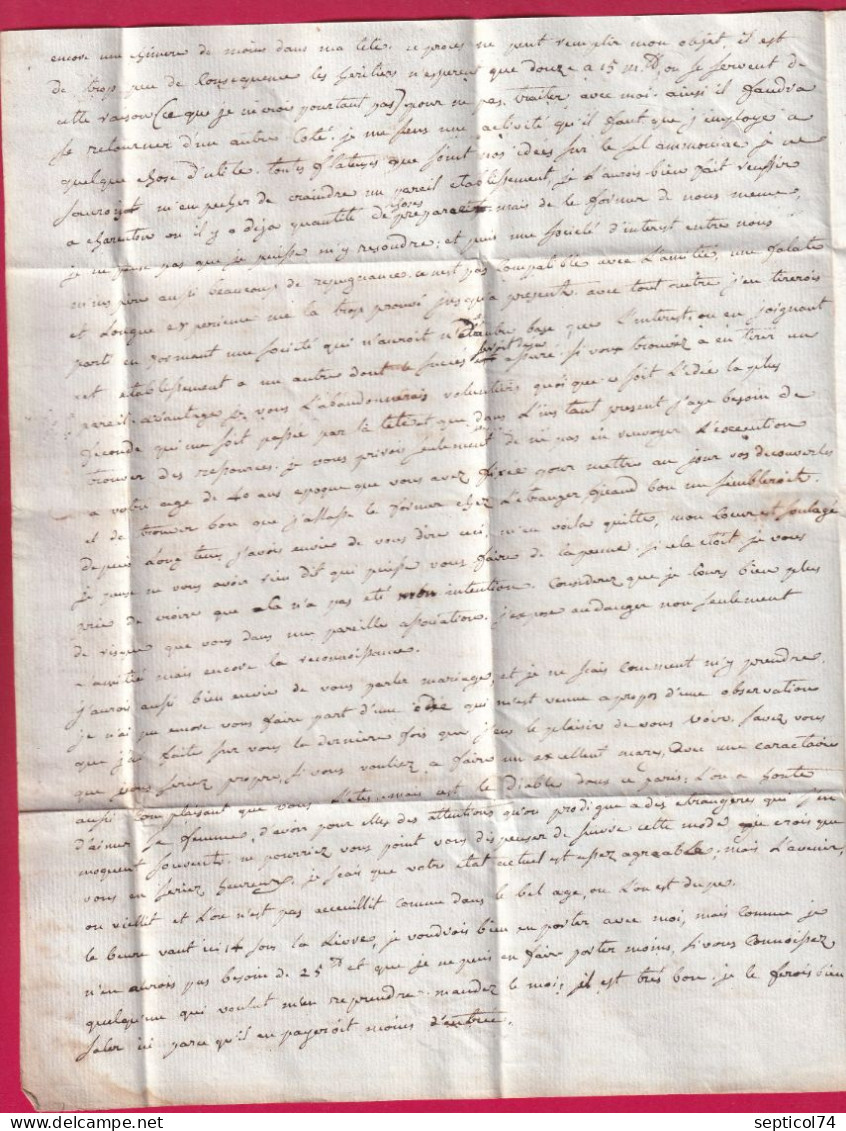 encore une chimere de moins dans ma tete. ce proces ne peut remplir mon objet, il est
de trop peu de Consequence les heritiers n'esperent que douze a 15 m.# ou se servent de
cette raison (ce que je ne crois pourtant pas) pour ne pas traiter avec moi. ainsi il faudra
se retourner d'un autre Coté. je me sens une activité qu'il faut que j'employe a
quelque chose d'utile. toutes flateuses que sont vos idées sur le sel ammoniac je ne
m'en pecher de craindre un pareil etablissement, je l'aurois bien fait reussir
a charenton ou il y a deja quantité de choses preparées. mais de le former de nous meme,
je ne pense pas que je puisse m'y resoudre: et puis une société d'interest entre nous
aussi beaucoup de repugnance. ce n'est pas Compatible avec L'amitié, une fatale
et Longue experience me la trop prouvé jusqu'a present. avec tout autre j'en tirerois
parti en formant une société qui n'auroit d'autre base que L'interest ou en joignant
cet etablissement a un autre dont le succes soit deja assuré. si vous trouviez a en tirer un
pareil avantage je vous L'abandonnerais volontiers quoi que ce soit L'idée la plus
féconde qui me soit passée par la tete et que dans L'instant present j'aye besoin de
trouver des ressources. je vous priois seulement de ne pas en renvoyer L'execution
a votre age de 40 ans epoque que vous avez fixée pour mettre au jour vos decouvertes
et de trouver bon que j'allasse le former chez L'etranger quand bon me sembleroit.
depuis Longtems j'avois envie de vous dire ceci, m'en voila quitte, mon Coeur est soulagé
je pense ne vous avoir rien dit qui puisse vous faire de la peine. si cela etoit je vous
prie de croire que cela n'a pas eté mon intention. Considerez que je Cours bien plus
de risque que vous dans une pareille association. j'expose au danger non seulement
L'amitié mais encore la reconnoissance.
j'aurois aussi bien envie de vous parler mariage, et je ne sais comment m'y prendre.
je n'ai pu encore vous faire part d'une idée qui m'est venue a propos d'une observation
que j'ai faite sur vous la derniere fois que j'eus le plaisir de vous voir. savez vous
que vous seriez propre, si vous vouliez a faire un excellent mary, avec une caractaire
aussi Complaisant que vous L'etes. mais c'est le Diable dans ce paris; L'on a honte
d'aimer sa femme, d'avoir pour elles des attentions qu'on prodigue a des etrangeres qui s'en
moquent souvent. ne pourriez vous point vous dispenser de suivre cette mode je crois que
vous en seriez heureux. je sais que votre etat actuel est assez agreable, mais L'avenir,
on vieillit et L'on n'est pas acceuillit comme dans le bel age, ou L'on est dupe.
le beure vaut ici 14 sous la Livre, je voudrois bien en porter avec moi, mais comme je
n'en aurois pas besoin de 25# et que je ne puis en faire porter moins, si vous Connoissez
quelqu'un qui voulut m'en reprendre. mandez le moi, il est très bon. je le ferois bien
saler ici parce qu'il en payeroit moins d'entrée.
septicol74